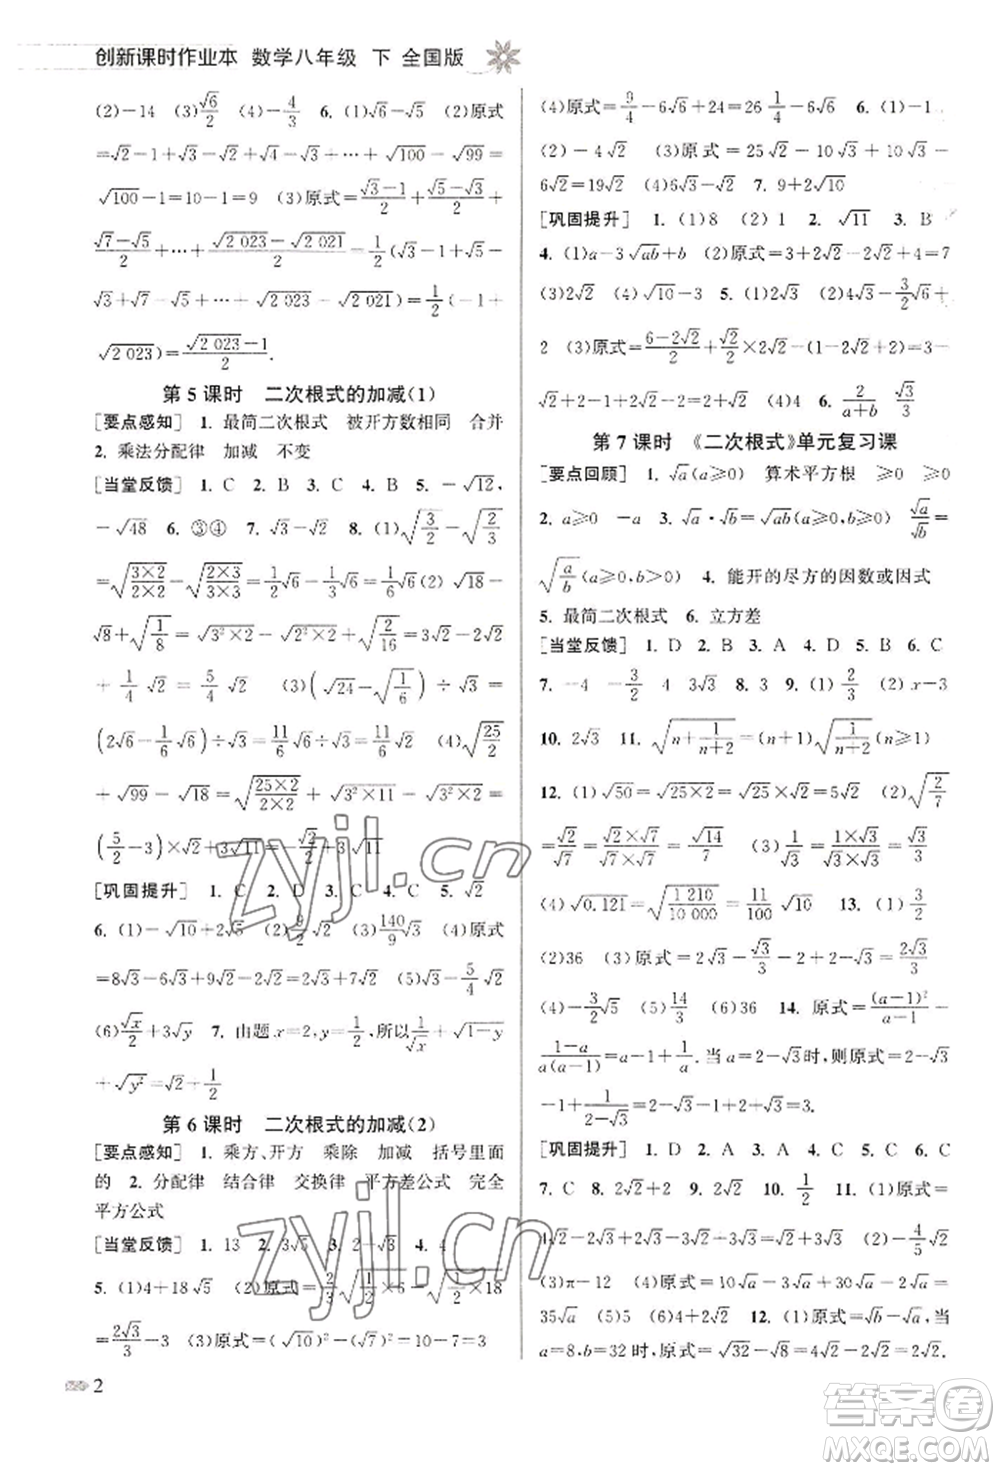 创新课时作业本 数学八年级 下 全国版
(2)-14 (3)√6/2 (4)-4/3 6. (1)√6-√5 (2)原式
=√2-1+√3-√2+√4-√3+…+√100-√99=
√100-1=10-1=9 (3)原式=(√3-1)/2+(√5-√3)/2+
(√7-√5)/2+…+(√2 023-√2 021)/2=1/2(-1+√3-√3+
√5-√5+√7+…+√2 023-√2 021)=1/2(-1+
√2 023)=(√2 023-1)/2.
第 5 课时 二次根式的加减(1)
[要点感知] 1. 最简二次根式 被开方数相同 合并
2. 乘法分配律 加减 不变
[当堂反馈] 1. C 2. B 3. C 4. B 5. -√12,
-√48 6. ③④ 7. √3 8. (1)√(3/2)-√(2/3)
=√((3×2)/(2×2))-√((2×3)/(3×3))=1/2√6-1/3√6=1/6√6 (2)√18-
√8+√(1/8)=√(3²×2)-√(2²×2)+√(2/16)=3√2-2√2
+1/4√2=5/4√2 (3)(√24-√(1/6))÷√6=
(2√6-1/6√6)÷√6=11/6√6÷√6=11/6 (4)√(25/2)
+√99-√18=√((25×2)/(2×2))+√(3²×11)-√(3²×2)=
(5/2-3)√2+3√11=-√2/2+3√11
[巩固提升] 1. C 2. D 3. A 4. C 5. √2
6. (1)-√10+2√2 (2)9/2√2 (3)140/9√3 (4)原式
=8√3-9√2+6√2-√3+2√2=7√3-√2 (5)√3-5/4√2
(6)√x/3+3√x 7. 由题x=2,y=1/2,所以1/√x+√(1-y)
+√y²=√2+1/2
第 6 课时 二次根式的加减(2)
[要点感知] 1. 乘方、开方 乘除 加减 括号里面
的 2. 分配律 结合律 交换律 平方差公式 完全
平方公式
[当堂反馈] 1. 13 2. 3√5 3. -2 4. 4
5. (1)4+18√2 (2)原式=2√(1/2×2/3)-1/2√(2×18)
=2√3/3-3 (3)原式=(√10)²-(√7)²=10-7=3
(4)原式=9/4-6√6+24=26 1/4-6√6 6. (1)-1
(2)-4√2 (3)原式=25√2-10√3+10√3-
6√2=19√2 (4)6√3-6√2 7. 9+2√10
[巩固提升] 1. (1)8 (2)1 2. √11 3. B
4. (1)a-3√ab+b (2)原式=3+2√2-2√2+4=7
(3)2√2 (4)√10-3 5. (1)2√3-4√2-3/2√6+
2 (3)原式=(6-2√2)/(2√2)+√2/2=3/2√2-1+
√2+√2-1=3√2-2 (4)4 6. 2/(a+b) √3/3
第 7 课时 《二次根式》单元复习课
[要点回顾] 1. √a(a≥0) 算术平方根 ≥0 ≥0
2. a≥0 -a 3. √a·√b=√ab(a≥0,b≥0) √a/√b=
√(a/b)(a≥0,b>0) 4. 能开的尽方的因数或因式
5. 最简二次根式 6. 立方差
[当堂反馈] 1. D 2. B 3. A 4. D 5. B 6. C
7. -4 -3/2 4 3√3 8. 3 9. (1)√2/2 (2)x-3
10. 2√3 11. √(n+1/(n+2))=(n+1)√(1/(n+2))(n≥1)
12. (1)√50=√(25×2)=√25×√2=5√2 (2)√(2/7)
=√2/√7=(√2×√7)/(√7×√7)=√14/7 (3)1/√3=(1×√3)/(√3×√3)=√3/3
(4)√0.121=√(1 210/10 000)=11/100√10 13. (1)3/2
(2)36 (3)原式=4-2√3+√3/3-2=2-5√3/3
(4)-3/2√5 (5)14/3 (6)36 14. 原式=(a-1)²/(a-1)-
(1-a)/(a(a-1))=a-1+1/a.当a=2-√3时,则原式=2-√3
-1+1/(2-√3)=1-√3+2+√3=3
[巩固提升] 1. D 2. D 3. A 4. A 5. C 6. C
7. C 8. 3 9. 2√2+2 10. 1/2 11. (1)原式=
4√2-2√2=2√2 (2)原式=√2-4/5√2=1/5√2
(3)π-12 (4)原式=2√a-√a+√a=2√a (5)
35√a (6)4√3+8√2 12. (1)原式=√b-√a,当
a=8,b=32时,原式=√32-√8=4√2-2√2=2√2.
2
zyjl.cn
zyjl.cn
答案圈
MXQE.COM